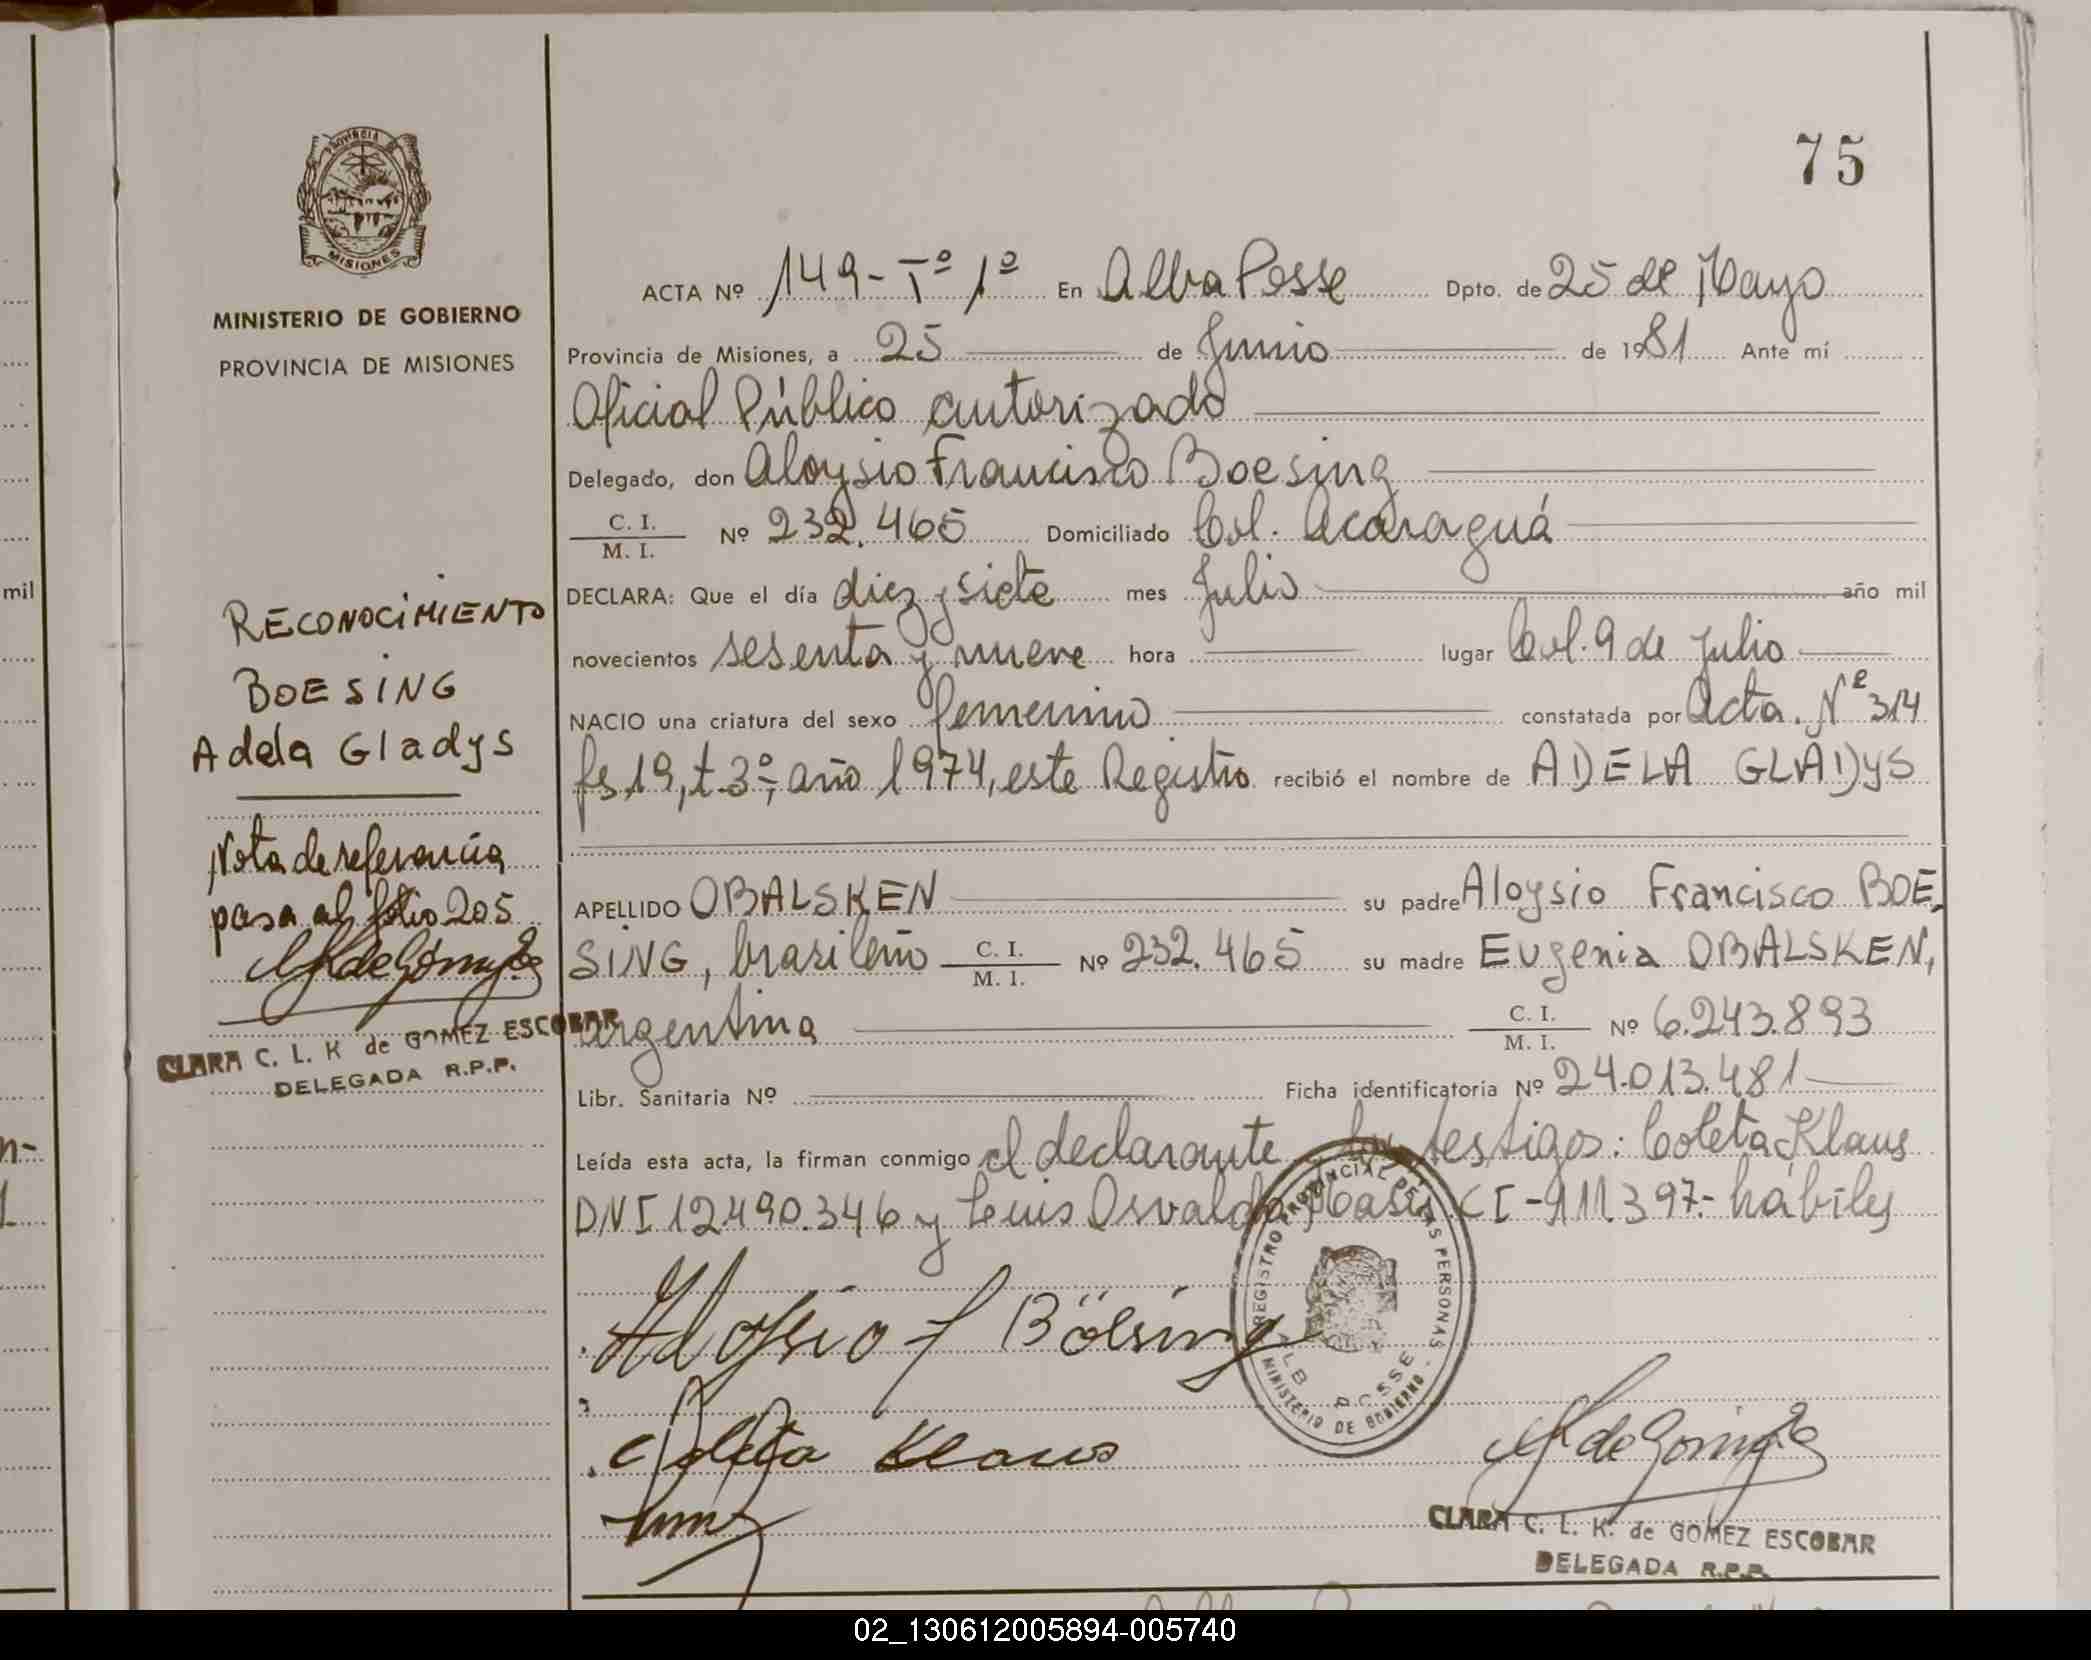 75
PROVINCIA
MISIONES
MINISTERIO DE GOBIERNO
PROVINCIA DE MISIONES
RECONOCIMIENTO
BOESING
Adela Gladys
Nota de referencia
pasa al folio 205
CLARA C. L. K de GOMEZ ESCOBAR
DELEGADA R.P.P.
ACTA Nº 149 - Tº 1º En Alba Posse Dpto. de 25 de Mayo
Provincia de Misiones, a 25 de Junio de 1981 Ante mí
Oficial Público autorizado
Delegado, don Aloysio Francisco Boesing
C. I.
M. I. Nº 232.465 Domiciliado Col. Acaraguá
DECLARA: Que el día diez y siete mes Julio año mil
novecientos sesenta y nueve hora lugar Col. 9 de Julio
NACIO una criatura del sexo femenino constatada por Acta. Nº 314
fs 19, t. 3º, año 1974, este Registro recibió el nombre de ADELA GLADyS
APELLIDO OBALSKEN su padre Aloysio Francisco BOE
SING, brasileño C. I. M. I. Nº 232.465 su madre Eugenia OBALSKEN,
argentina C. I. M. I. Nº 6.243.893
Libr. Sanitaria Nº Ficha identificatoria Nº 24.013.481
Leída esta acta, la firman conmigo el declarante y los testigos: Coleta Klaus
DNI 12490.346 y Luis Osvaldo CI - 911.397.- hábiles
REGISTRO PROVINCIAL DE LAS PERSONAS
ALB POSSE
MINISTERIO DE GOBIERNO
Aloysio f Bösing
Coleta Klaus
CLARA C. L. K. de GOMEZ ESCOBAR
DELEGADA R.P.P.
mil
02_130612005894-005740